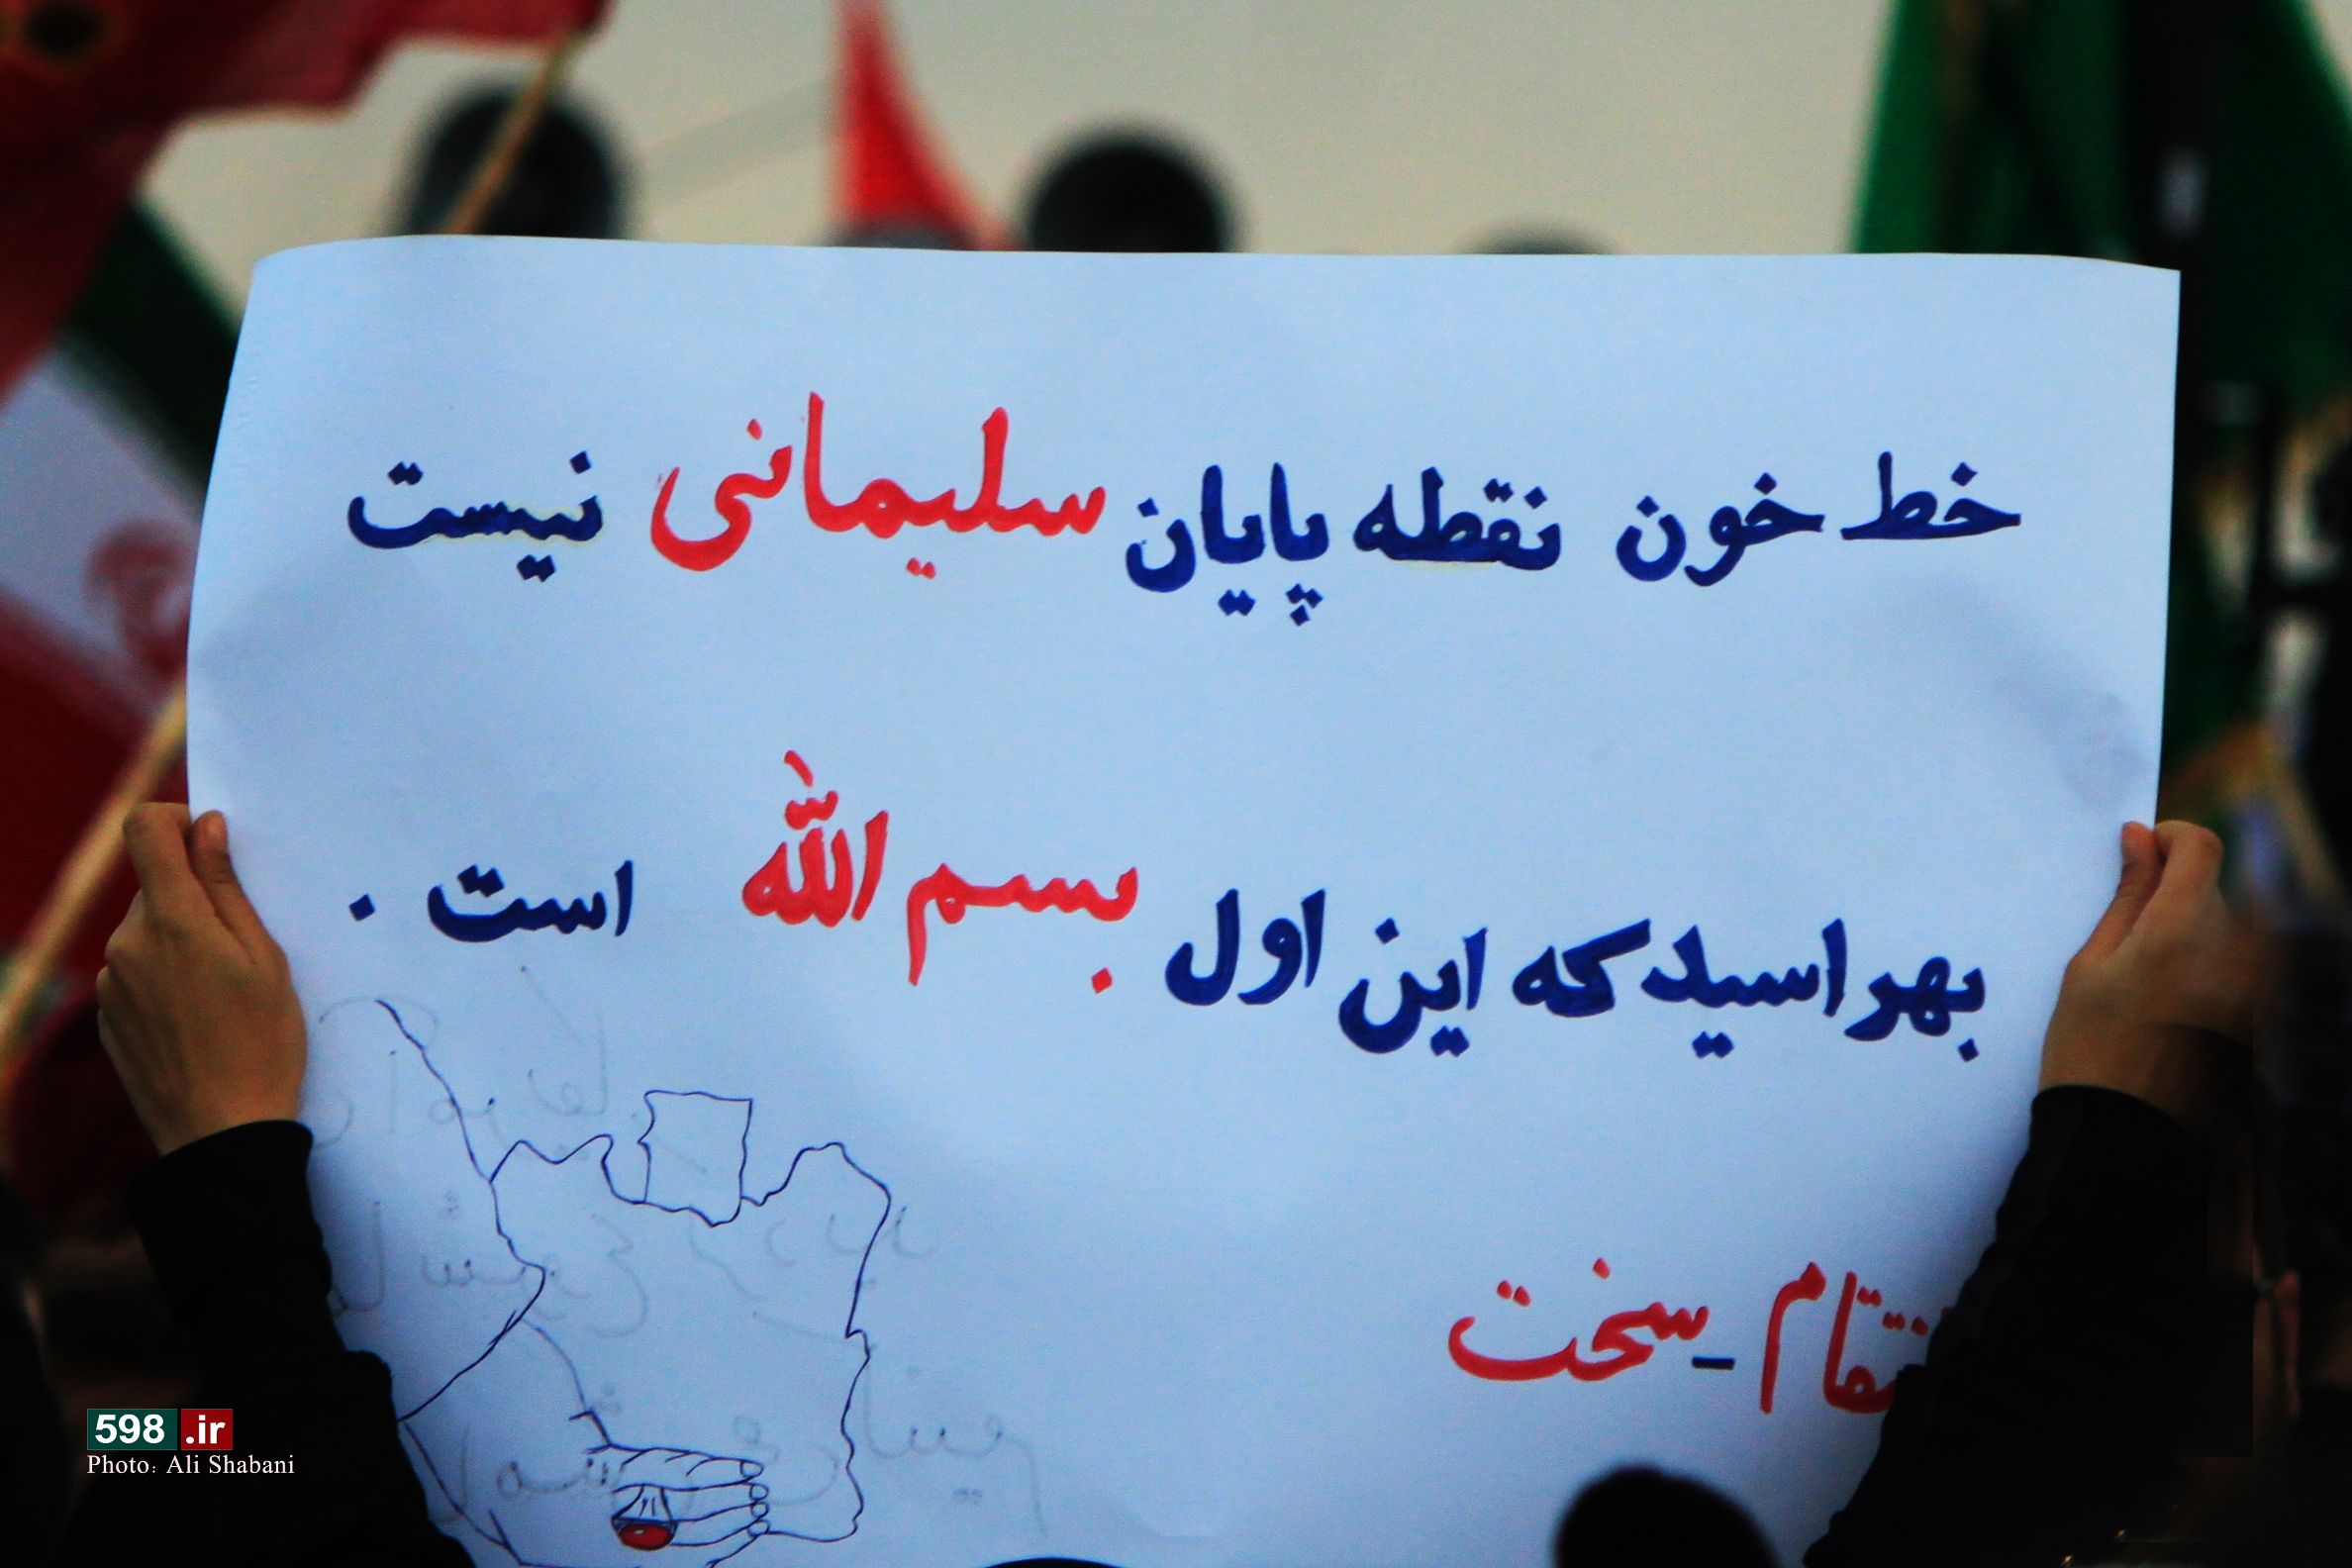 خط خون نقطه پایان سلیمانی نیست
بهراسید که این اول بسم الله است .
نتقام - سخت
598.ir
Photo: Ali Shabani